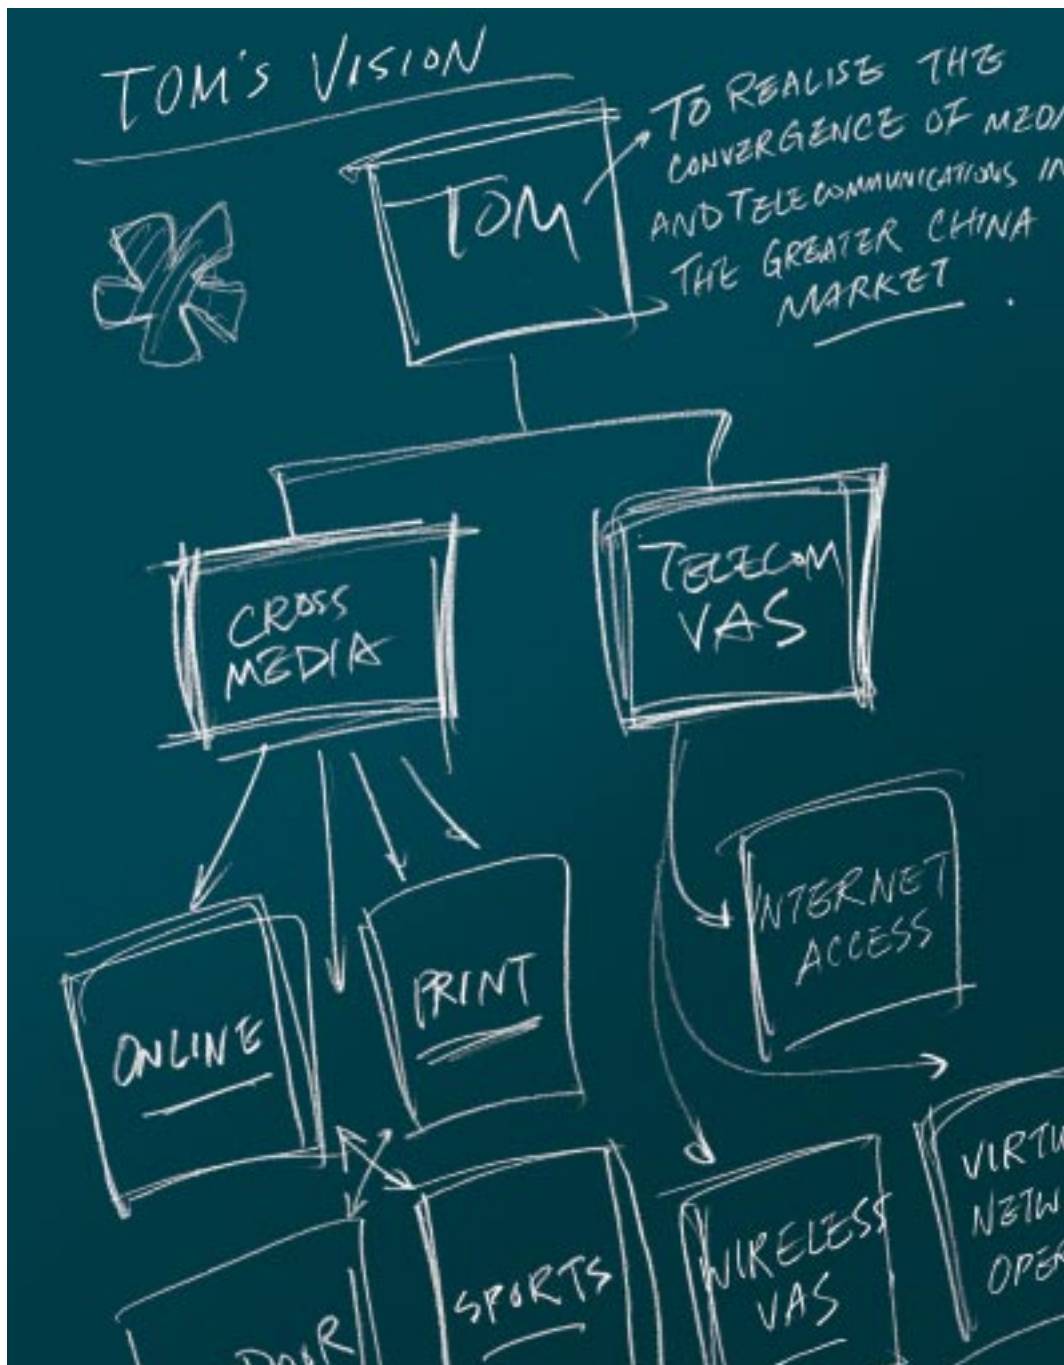 TOM'S VISION
TOM
TO REALISE THE
CONVERGENCE OF MEDIA
AND TELECOMMUNICATIONS IN
THE GREATER CHINA
MARKET
CROSS
MEDIA
TELECOM
VAS
INTERNET
ACCESS
ONLINE
PRINT
SPORTS
WIRELESS
VAS